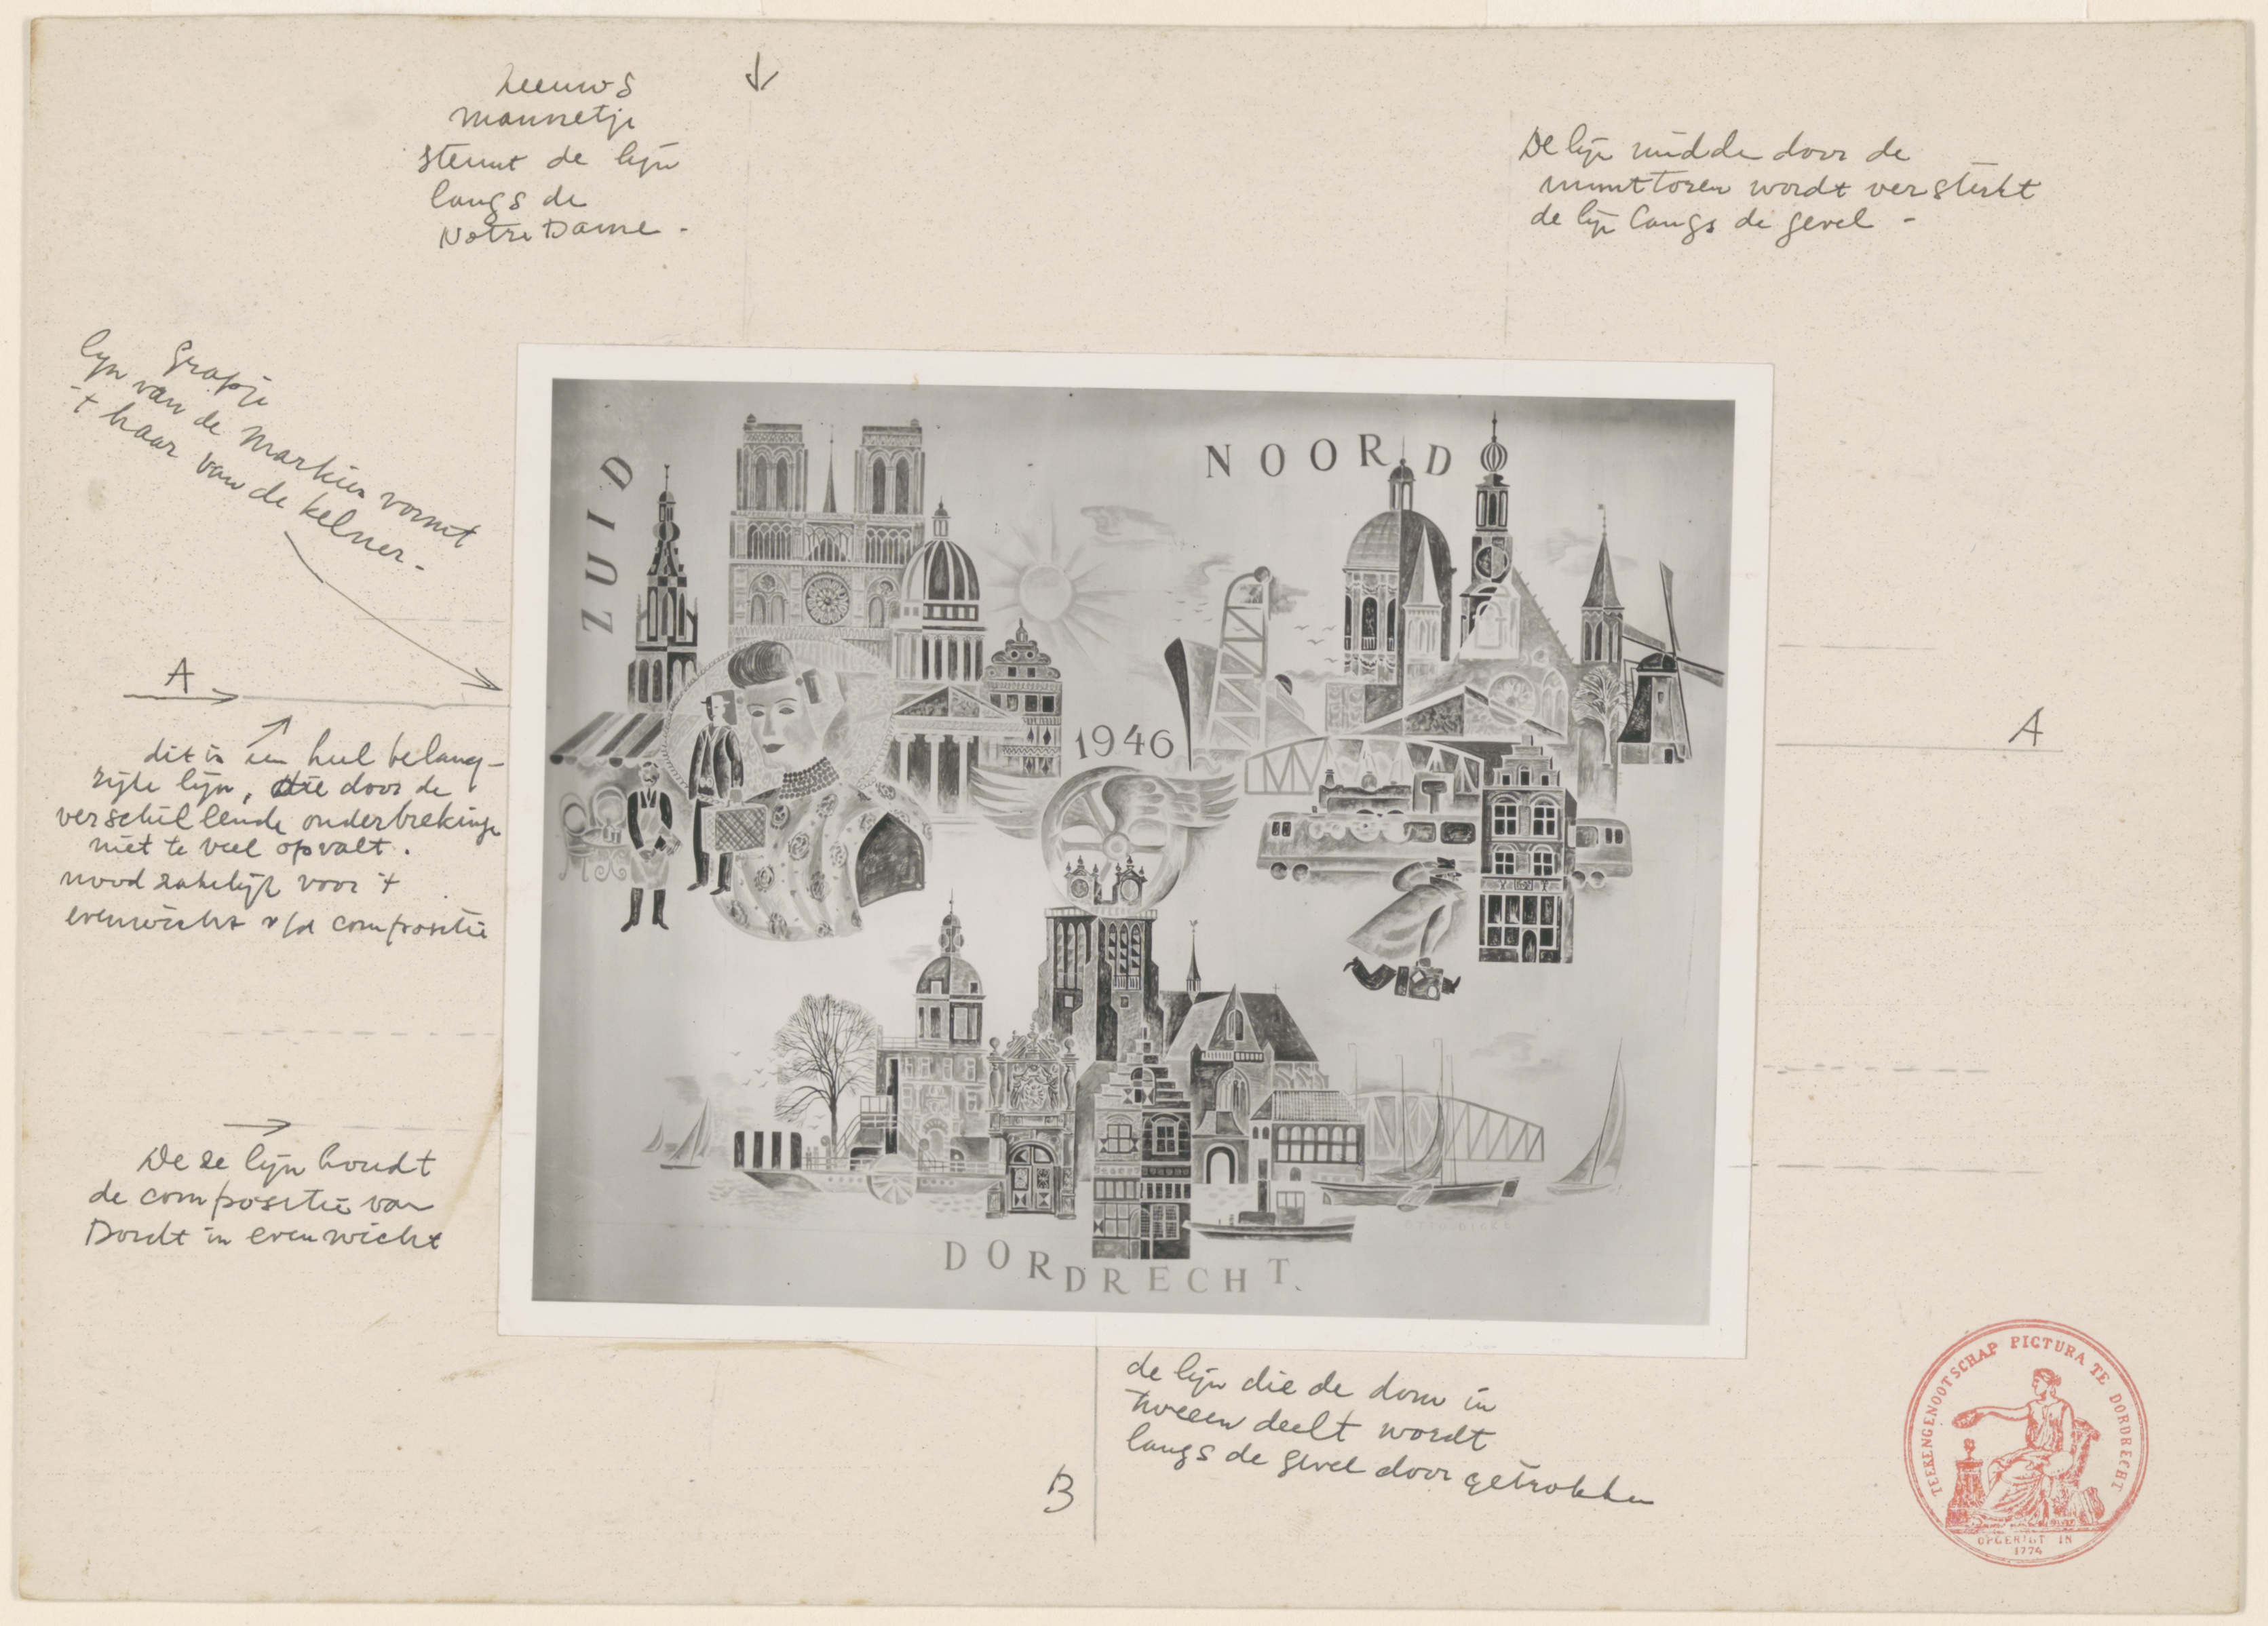 Zeeuws
mannetje
steunt de lijn
langs de
Notre Dame -
De lijn midde door de
munttoren wordt versterkt
de lijn langs de gevel -
grapje
lijn van de Markies vormt
't haar van de kelner -
A
dit is een heel belang-
rijke lijn, die door de
verschillende onderbrekinge
niet te veel opvalt.
noodzakelijk voor 't
evenwicht v/d compositie
Deze lijn houdt
de compositie van
Dordt in evenwicht
ZUID
NOORD
1946
DORDRECHT.
OTTO DICKE
A
de lijn die de dom in
tweeen deelt wordt
langs de gevel doorgetrokken
B
TEEKENGENOOTSCHAP PICTURA TE DORDRECHT
OPGERIGT IN
1774